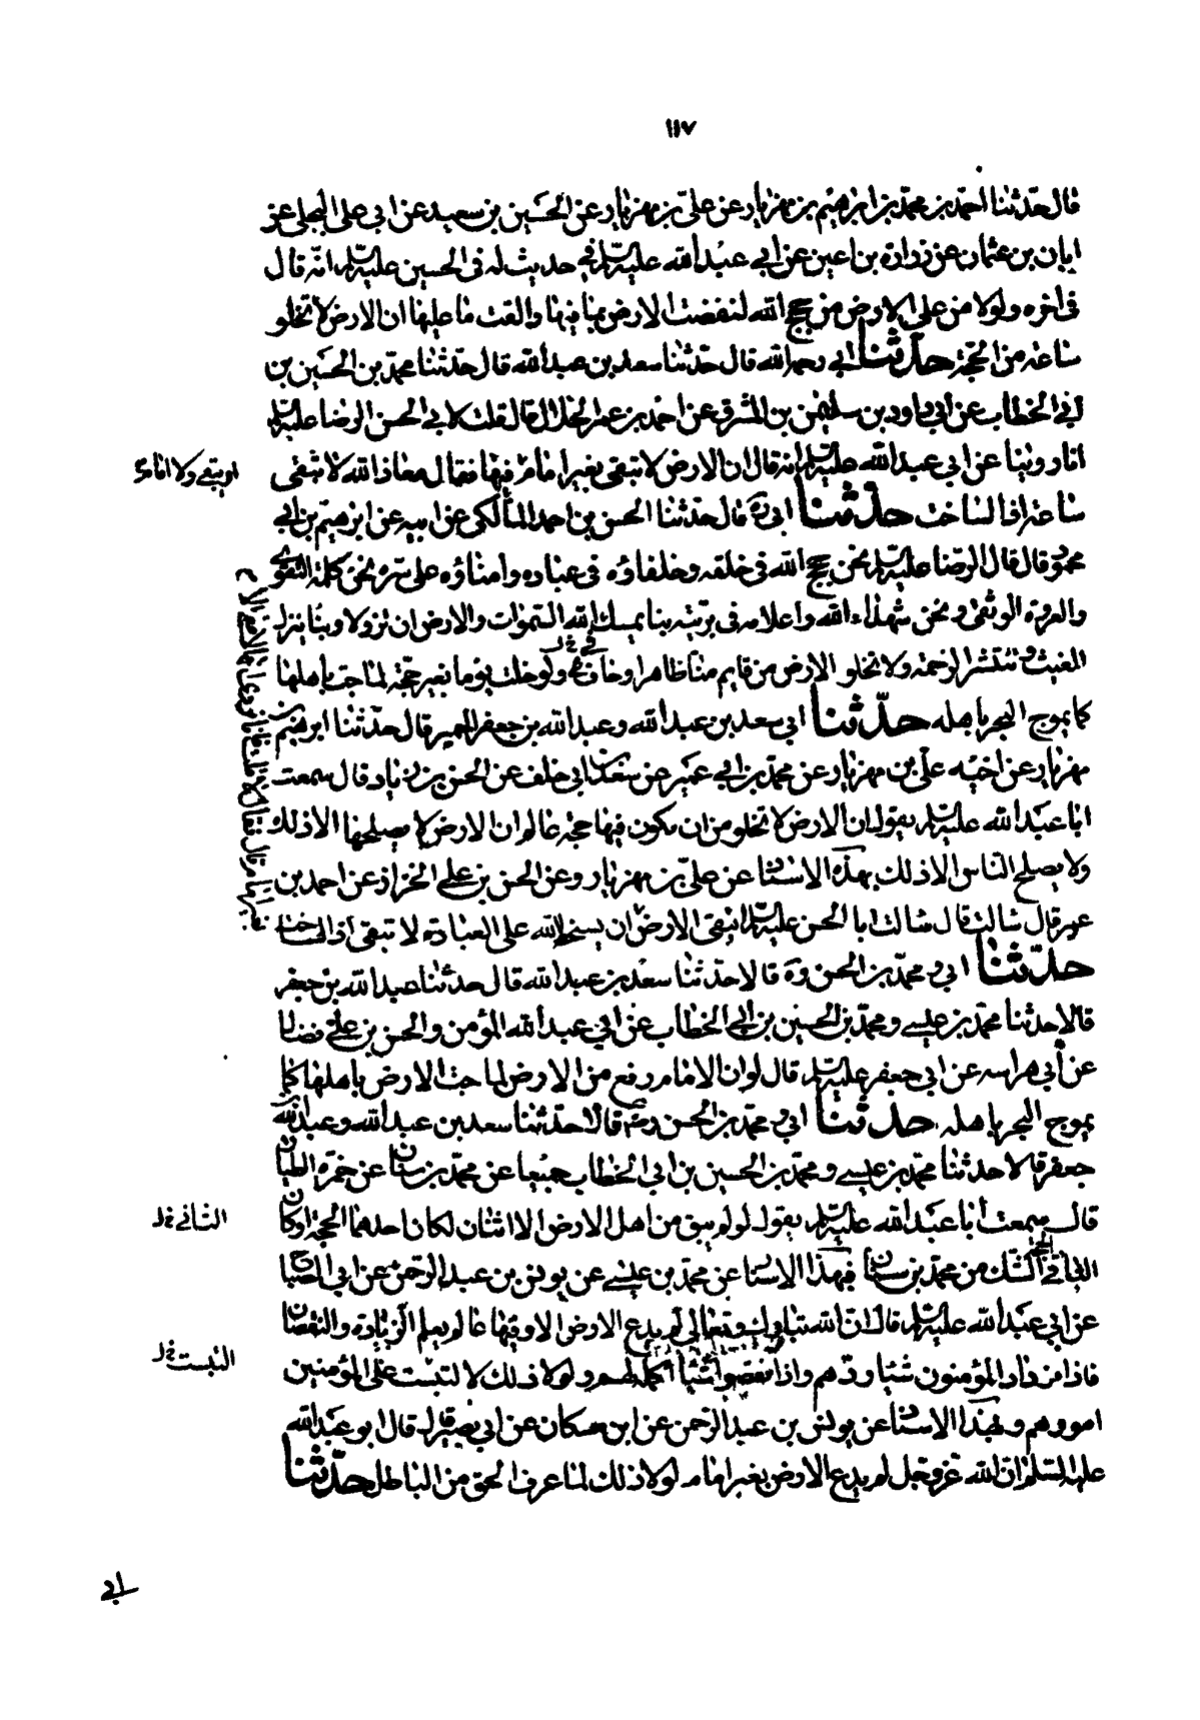 ١١٧
قال حدثنا احمد بن محمد بن ابراهيم بن مهزيار عن علي بن مهزيار عن الحسين بن سعيد عن ابي علي البجلي عن
ابان بن عثمان عن زرارة بن اعين عن ابي عبد الله عليه السلام في حديث له في الحسين عليه السلام انه قال
في اخره ولولا من على الارض من حجج الله لنفضت الارض بما فيها والقت ما عليها ان الارض لا تخلو
ساعة من الحجة حدثنا ابي رحمه الله قال حدثنا سعد بن عبد الله قال حدثنا محمد بن الحسين بن
ابي الخطاب عن ابي داود بن سليمن بن المشرقي عن احمد بن عمر الحلال قال قلت لابي الحسن الرضا عليه السلام
انا روينا عن ابي عبد الله عليه السلام انه قال ان الارض لا تبقى بغير امام فيها فقال معاذ الله لا تبقى
او يبقى ولا امام
ساعة اذا لساخت حدثنا ابي ره قال حدثنا الحسن بن احمد المالكي عن ابيه عن ابرهيم بن ابي
محمود قال قال الرضا عليه السلام نحن حجج الله في خلقه وخلفاؤه في عباده وامناؤه على سره نحن كلمة التقوى
والعروة الوثقى ونحن شهداء الله واعلامه في بريته بنا يمسك الله السموات والارض ان تزولا وبنا ينزل
الغيث وينشر الرحمة ولا تخلو الارض من قايم منا ظاهر او خاف ولو خلت يوما بغير حجة لماجت باهلها
كما يموج البحر باهله حدثنا ابي سعد بن عبد الله وعبد الله بن جعفر الحميري قال حدثنا ابرهيم بن
مهزيار عن اخيه علي بن مهزيار عن محمد بن ابي عمير عن سعد بن ابي خلف عن الحسن بن زياد قال سمعت
ابا عبد الله عليه السلام يقول ان الارض لا تخلو من ان يكون فيها حجة عالم ان الارض لا يصلحها الا ذلك
ولا يصلح الناس الا ذلك بهذا الاسناد عن علي بن مهزيار وعن الحسن بن علي الخزاز عن احمد بن
عمر قال سالت قال سالت ابا الحسن عليه السلام اتبقى الارض ان يسخط الله على العباد ة لا تبقى اذا لساخت
حدثنا ابي و محمد بن الحسن ره قالا حدثنا سعد بن عبد الله قال حدثنا عبد الله بن جعفر
قالا حدثنا محمد بن عيسى ومحمد بن الحسين بن ابي الخطاب عن ابي عبد الله المؤمن والحسن بن علي فضال
عن ابي هراسه عن ابي جعفر عليه السلام قال لو ان الامام رفع من الارض لماجت الارض باهلها كما
يموج البحر باهله حدثنا ابي و محمد بن الحسن رضه قالا حدثنا سعد بن عبد الله وعبد الله
جعفر قالا حدثنا محمد بن عيسى ومحمد بن الحسين بن ابي الخطاب جميعا عن محمد بن سنان عن حمزة الطيار
قال سمعت ابا عبد الله عليه السلام يقول لو لم يبق من اهل الارض الا اثنان لكان احدهما الحجة او كان
الثاني خ ل
الباقي الحجة الشك من محمد بن سنان فبهذا الاسناد عن محمد بن عيسى عن يونس بن عبد الرحمن عن ابي الصباح
عن ابي عبد الله عليه السلام قال ان الله تبارك وتعالى لم يدع الارض الا وفيها عالم يعلم الزيادة والنقصان
فاذا من زاد المؤمنون شيئا ردهم واذا نقصوا شيئا اكمله لهم ولولا ذلك لالتبست على المؤمنين
التبست خ ل
امورهم وبهذا الاسناد عن يونس بن عبد الرحمن عن ابن مسكان عن ابي بصير قال قال ابو عبد الله
عليه السلام ان الله عز وجل لم يدع الارض بغير امام لولا ذلك لما عرف الحق من الباطل حدثنا
ابي